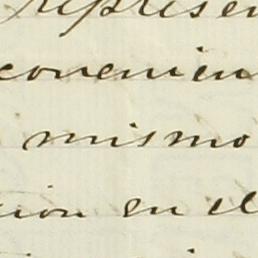 represen
convenien
mismo
ion en el